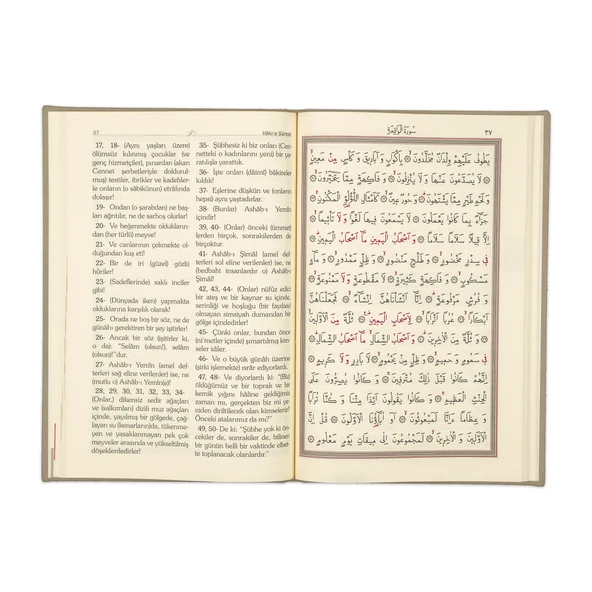 37
Vâkı'a Sûresi
17, 18- (Aynı yaşları üzere)
ölümsüz kılınmış çocuklar (ve
genç hizmetçiler), pınardan (akan
Cennet şerbetiyle doldurul-
muş) testiler, ibrikler ve kadehler-
le onların (o sâbikûnun) etrâfında
dolaşır!
19- Ondan (o şarabdan) ne baş-
ları ağrıtılır, ne de sarhoş olurlar!
20- Ve beğenmekte oldukların-
dan (her türlü) meyve!
21- Ve canlarının çekmekte ol-
duğundan kuş eti!
22- Bir de iri (güzel) gözlü
hûriler!
23- (Sadeflerinde) saklı inciler
gibi!
24- (Dünyada iken) yapmakta
olduklarına karşılık olarak!
25- Orada ne boş bir söz, ne de
günâhı gerektiren bir şey işitirler!
26- Ancak bir söz işitirler ki,
o da: "Selâm (olsun!), selâm
(olsun!)" dur.
27- Ashâb-ı Yemîn (amel def-
terleri sağ eline verilenler) ise, ne
(mutlu o) Ashâb-ı Yemîn(e)!
28, 29, 30, 31, 32, 33, 34-
(Onlar,) dikensiz sedir ağaçları
ve (salkımları) dizili muz ağaçları
içinde, yayılmış bir gölgede, çağ-
layan su (kenarların)da, tükenme-
yen ve yasaklanmayan pek çok
meyveler arasında ve yükseltilmiş
döşeklerdedirler!
35- Şübhesiz ki biz onları (Cen-
netteki o kadınlarını yeni) bir ya-
ratılışla yarattık.
36- İşte onları (dâimî) bâkireler
kıldık!
37- Eşlerine düşkün ve (onların)
hepsi aynı yaştadırlar.
38- (Bunlar) Ashâb-ı Yemîn
içindir!
39, 40- (Onların) önceki (ümmet)
lerden birçok, sonrakilerden de
birçoktur.
41- Ashâb-ı Şimâl (amel def-
terleri sol eline verilenler) ise, ne
(bedbaht insanlardır o) Ashâb-ı
Şimâl!
42, 43, 44- (Onlar) nüfûz edici
bir ateş ve bir kaynar su içinde,
serinliği ve hoşluğu (bir faydası)
olmayan simsiyah dumandan bir
gölge içindedirler!
45- Çünki onlar, bundan önce
(ni'metler içinde) şımartılmış kim-
seler idiler.
46- Ve o büyük günâh üzerinde
(şirk işlemekte) ısrâr ediyorlardı.
47, 48- Ve diyorlardı ki: "(Biz)
öldüğümüz ve bir toprak ve bir
kemik yığını hâline geldiğimiz
zaman mı, gerçekten biz mi ye-
niden diriltilecek olan kimseleriz?
Önceki atalarımız da mı?"
49, 50- De ki: "Şübhe yok ki ön-
cekiler de, sonrakiler de, bilinen
bir günün belli bir vaktinde elbet-
te toplanacak olanlardır."
سُورَةُ الْوَاقِعَةِ
٣٧
يَطُوفُ عَلَيْهِمْ وِلْدَانٌ مُخَلَّدُونَ ۞ بِأَكْوَابٍ وَأَبَارِيقَ وَكَأْسٍ مِنْ مَعِينٍ ۞
لَا يُصَدَّعُونَ عَنْهَا وَلَا يُنْزِفُونَ ۞ وَفَاكِهَةٍ مِمَّا يَتَخَيَّرُونَ ۞
وَلَحْمِ طَيْرٍ مِمَّا يَشْتَهُونَ ۞ وَحُورٌ عِينٌ ۞ كَأَمْثَالِ اللُّؤْلُؤِ الْمَكْنُونِ ۞
جَزَاءً بِمَا كَانُوا يَعْمَلُونَ ۞ لَا يَسْمَعُونَ فِيهَا لَغْوًا وَلَا تَأْثِيمًا ۞
إِلَّا قِيلًا سَلَامًا سَلَامًا ۞ وَأَصْحَابُ الْيَمِينِ مَا أَصْحَابُ الْيَمِينِ ۞
فِي سِدْرٍ مَخْضُودٍ ۞ وَطَلْحٍ مَنْضُودٍ ۞ وَظِلٍّ مَمْدُودٍ ۞ وَمَاءٍ
مَسْكُوبٍ ۞ وَفَاكِهَةٍ كَثِيرَةٍ ۞ لَا مَقْطُوعَةٍ وَلَا مَمْنُوعَةٍ ۞
وَفُرُشٍ مَرْفُوعَةٍ ۞ إِنَّا أَنْشَأْنَاهُنَّ إِنْشَاءً ۞ فَجَعَلْنَاهُنَّ
أَبْكَارًا ۞ عُرُبًا أَتْرَابًا ۞ لِأَصْحَابِ الْيَمِينِ ۞ ثُلَّةٌ مِنَ الْأَوَّلِينَ ۞
وَثُلَّةٌ مِنَ الْآخِرِينَ ۞ وَأَصْحَابُ الشِّمَالِ مَا أَصْحَابُ الشِّمَالِ ۞
فِي سَمُومٍ وَحَمِيمٍ ۞ وَظِلٍّ مِنْ يَحْمُومٍ ۞ لَا بَارِدٍ وَلَا كَرِيمٍ ۞
إِنَّهُمْ كَانُوا قَبْلَ ذَلِكَ مُتْرَفِينَ ۞ وَكَانُوا يُصِرُّونَ عَلَى
الْحِنْثِ الْعَظِيمِ ۞ وَكَانُوا يَقُولُونَ أَئِذَا مِتْنَا وَكُنَّا تُرَابًا
وَعِظَامًا أَئِنَّا لَمَبْعُوثُونَ ۞ أَوَ آبَاؤُنَا الْأَوَّلُونَ ۞ قُلْ إِنَّ
الْأَوَّلِينَ وَالْآخِرِينَ ۞ لَمَجْمُوعُونَ إِلَى مِيقَاتِ يَوْمٍ مَعْلُومٍ ۞